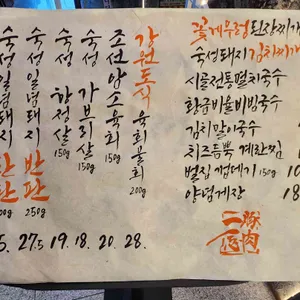 강원도식 육회물회 200g
조선암소육회 150g
숙성 가브리살 150g
숙성 항정살 150g
숙성일념돼지 반판 250g
숙성일념돼지 한판
28.
20.
18.
19.
27.5
꽃게우렁된장찌개
숙성돼지김치찌개
시골전통멸치국수
황금비율비빔국수
김치말이국수
치즈듬뿍 계란찜
벌집껍데기 150g
양념게장
豚肉